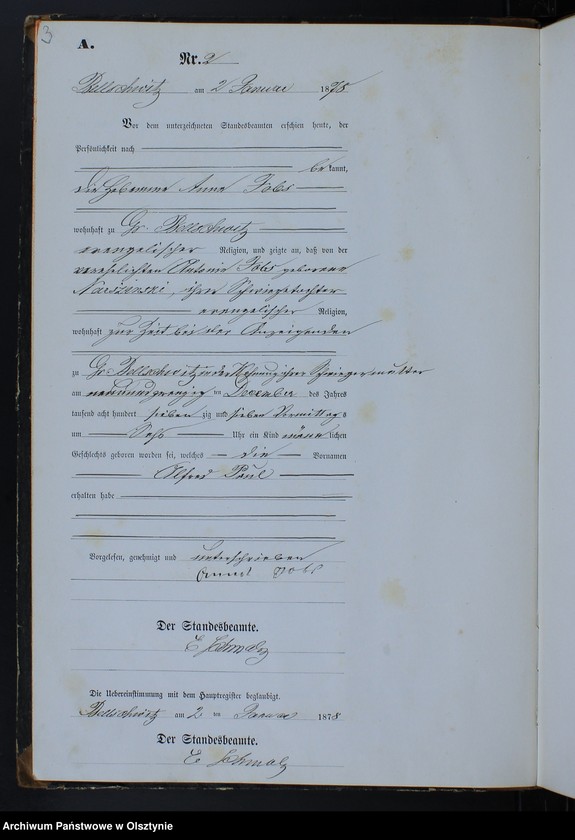 3
A.
Nr. 2
Bellschwitz am 2 Januar 1878
Vor dem unterzeichneten Standesbeamten erschien heute, der
Persönlichkeit nach
be kannt,
die Hebamme Anna Jobs
wohnhaft zu Gr. Bellschwitz
evangelischer Religion, und zeigte an, daß von der
verehelichten Antonie Jobs geborene
ihrer Schwiegertochter
evangelischer Religion,
wohnhaft zur Zeit bei der Anzeigenden
zu Gr. Bellschwitz in der Wohnung ihrer Schwiegermutter
am neunundzwanzig ten December des Jahres
tausend acht hundert sieben zig und sieben Vormittags
um Uhr ein Kind männ lichen
Geschlechts geboren worden sei, welches die Vornamen
Alfred Paul
erhalten habe
Vorgelesen, genehmigt und unterschrieben
Jobs
Der Standesbeamte.
E Schmalz
Die Uebereinstimmung mit dem Hauptregister beglaubigt.
Bellschwitz am 2 ten Januar 1878
Der Standesbeamte.
E Schmalz
Archiwum Państwowe w Olsztynie